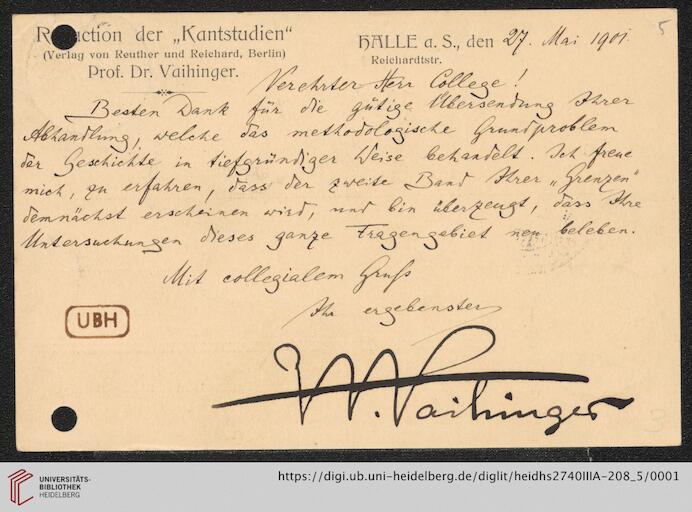 Redaction der „Kantstudien"
(Verlag von Reuther und Reichard, Berlin)
Prof. Dr. Vaihinger.
HALLE a. S., den 27. Mai 1901.
Reichardtstr.
5
Verehrter Herr College!
Besten Dank für die gütige Übersendung Ihrer
Abhandlung, welche das methodologische Grundproblem
der Geschichte in tiefgründiger Weise behandelt. Ich freue
mich, zu erfahren, dass der zweite Band Ihrer „Grenzen"
demnächst erscheinen wird, und bin überzeugt, dass Ihre
Untersuchungen dieses ganze Fragengebiet neu beleben.
Mit collegialem Gruß
Ihr ergebenster
H. Vaihinger
UBH
3
UNIVERSITÄTS-
BIBLIOTHEK
HEIDELBERG
https://digi.ub.uni-heidelberg.de/diglit/heidhs2740IIIA-208_5/0001